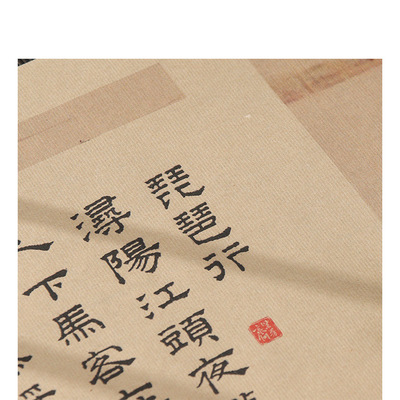 琵琶行
潯陽江頭夜
人下馬客